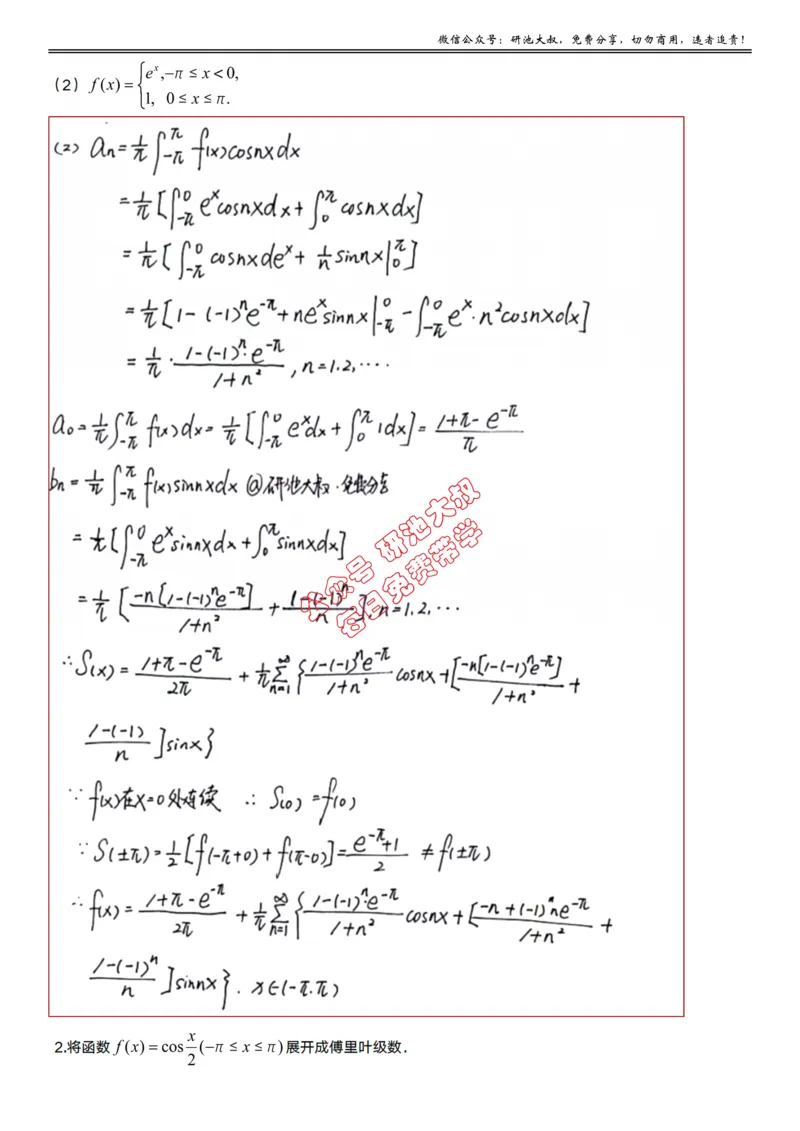 微信公众号：研池大叔，免费分享，切勿商用，违者追责！
（2） f(x)={e^x, -π≤x<0,
1, 0≤x≤π.
(2) an=1/π∫_{-π}^{π} f(x)cosnxdx
=1/π[∫_{-π}^{0} e^x cosnxdx+∫_{0}^{π} cosnxdx]
=1/π[∫_{-π}^{0} cosnxde^x+1/n sinnx|_{0}^{π}]
=1/π[1-(-1)^n e^{-π}+ne^x sinnx|_{-π}^{0}-∫_{-π}^{0} e^x·n²cosnxdx]
=1/π·(1-(-1)^n·e^{-π})/(1+n²), n=1.2,····
a0=1/π∫_{-π}^{π} f(x)dx=1/π[∫_{-π}^{0} e^x dx+∫_{0}^{π} 1dx]=(1+π-e^{-π})/π
bn=1/π∫_{-π}^{π} f(x)sinnxdx @研池大叔·免费分享
=1/π[∫_{-π}^{0} e^x sinnxdx+∫_{0}^{π} sinnxdx]
=1/π[(-n[1-(-1)^n e^{-π}])/(1+n²)+(1-(-1)^n)/n] n=1.2,···
公众号 研池大叔
各科免费带学
∴S(x)=(1+π-e^{-π})/(2π)+1/π∑_{n=1}^{∞}{(1-(-1)^n e^{-π})/(1+n²) cosnx+[(-n[1-(-1)^n e^{-π}])/(1+n²)+
(1-(-1))/n]sinx}
∵f(x)在x=0处连续 ∴S(0)=f(0)
∵S(±π)=1/2[f(-π+0)+f(π-0)]=(e^{-π}+1)/2≠f(±π)
∴f(x)=(1+π-e^{-π})/(2π)+1/π∑_{n=1}^{∞}{(1-(-1)^n·e^{-π})/(1+n²) cosnx+[(-n+(-1)^n ne^{-π})/(1+n²)+
(1-(-1)^n)/n]sinnx}. x∈(-π.π)
2.将函数 f(x)=cos x/2 (-π≤x≤π)展开成傅里叶级数.